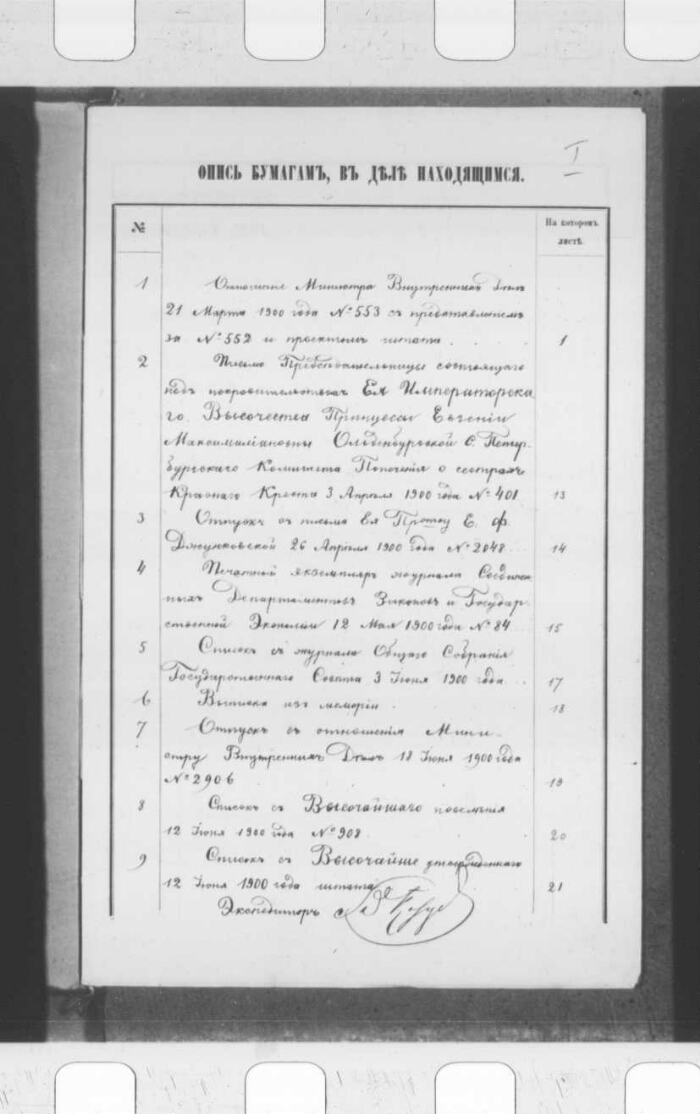 I
ОПИСЬ БУМАГАМЪ, ВЪ ДѢЛѢ НАХОДЯЩИМСЯ.
№
На которомъ листѣ.
1 Отношенie Министра Внутреннихъ Дѣлъ
21 Марта 1900 года № 553 съ представленiемъ
за № 552 и проектомъ штата. 1
2 Письмо Предсѣдательницы состоящаго
подъ покровительствомъ Ея Императорска-
го Высочества Принцессы Евгенiи
Максимилiановны Ольденбургской С. Петер-
бургскаго Комитета Попеченiя о сестрахъ
Краснаго Креста 3 Апрѣля 1900 года № 401 13
3 Отпускъ съ письма Ея Прев-ву Е. Ф.
Джунковской 26 Апрѣля 1900 года № 2048 14
4 Печатный экземпляръ журнала Соединен-
ныхъ Департаментовъ Законовъ и Государ-
ственной Экономiи 12 Мая 1900 года № 84 15
5 Списокъ съ журнала Общаго Собранiя
Государственнаго Совѣта 3 Iюня 1900 года 17
6 Выписка изъ меморiи 18
7 Отпускъ съ отношенiя Мини-
стру Внутреннихъ Дѣлъ 18 Iюня 1900 года
№ 2906 19
8 Списокъ съ Высочайшаго повелѣнiя
12 Iюня 1900 года № 908 20
9 Списокъ съ Высочайше утвержденнаго
12 Iюня 1900 года штата 21
Экспедиторъ